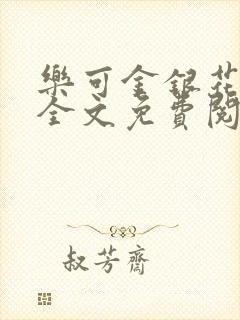 樂可金銀花
全文免費閱
叔芳齋